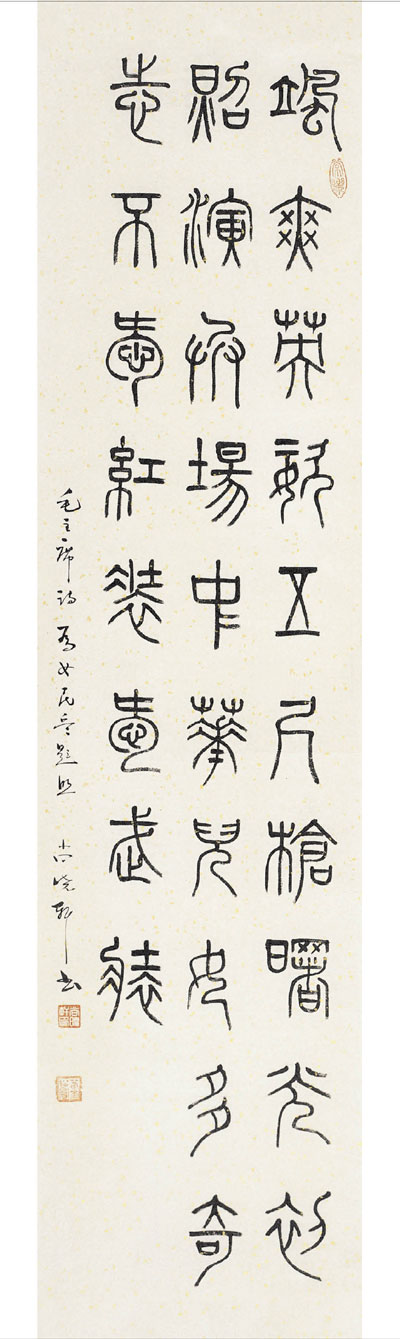 颯爽英姿五尺槍曙光初
照演兵場中華兒女多奇
志不愛紅裝愛武裝
毛主席詩為女民兵題照 尚曉軒書